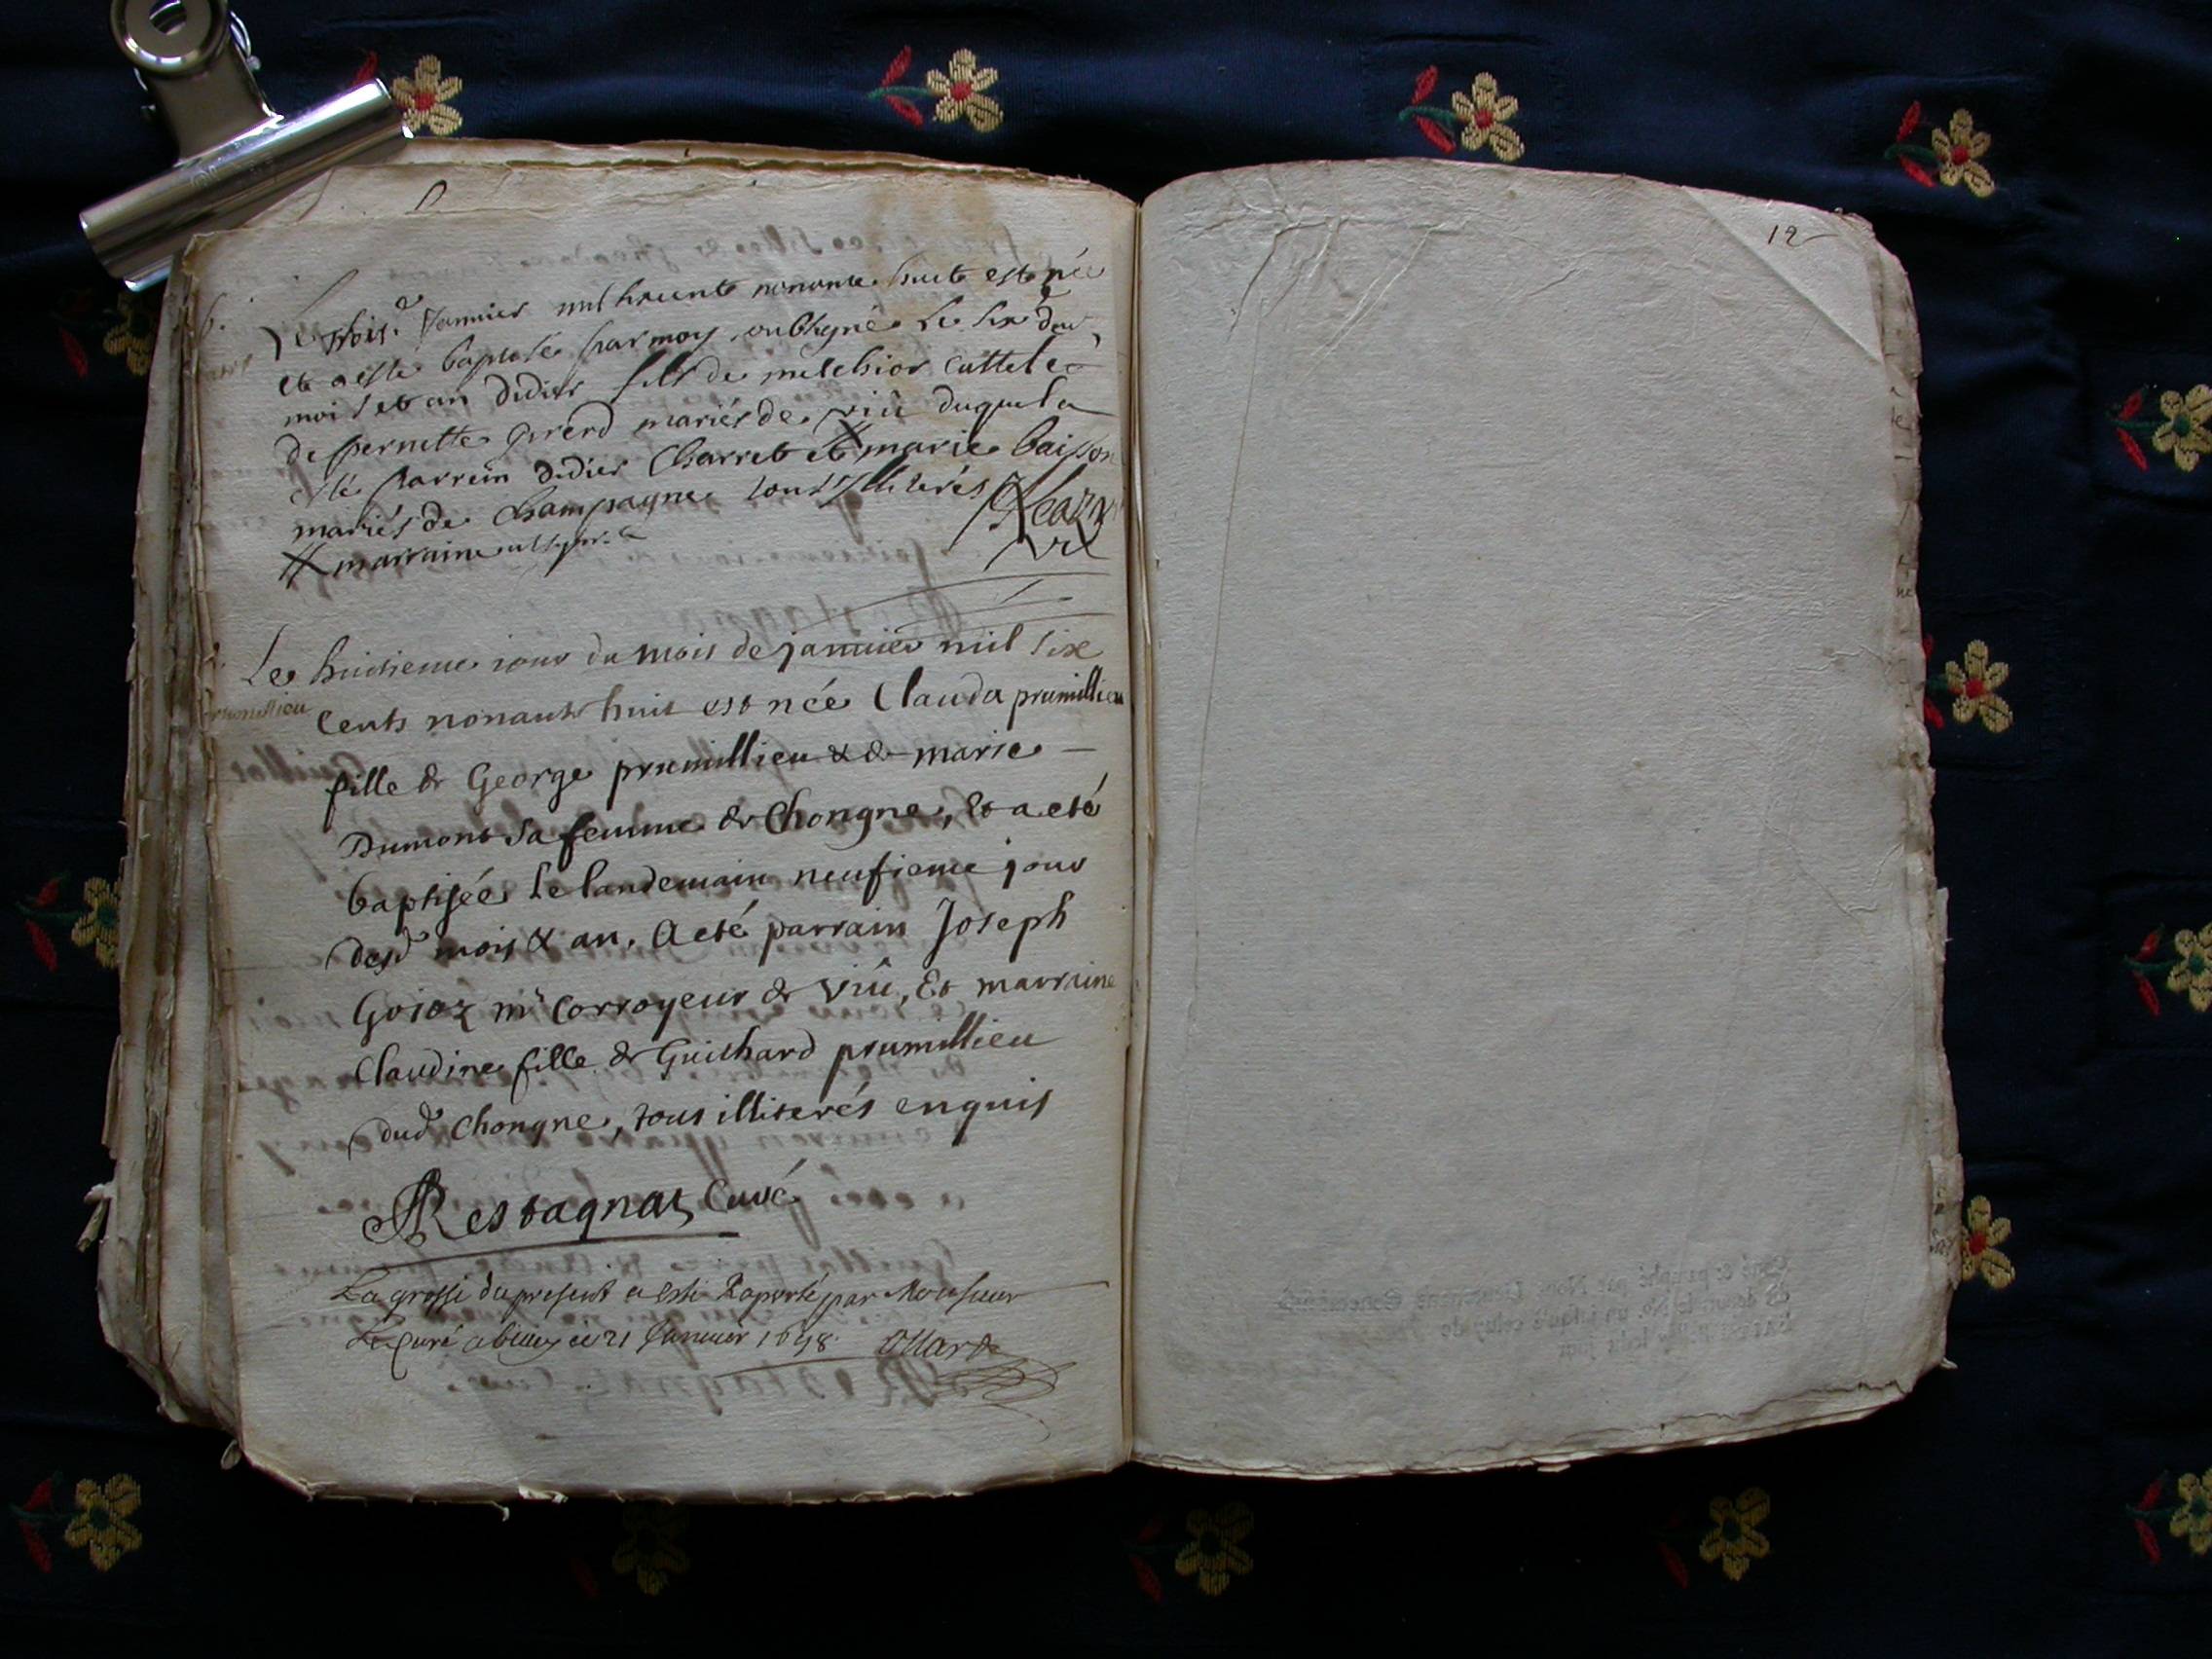 Le trois.e Janvier mil six cent nonante huit est née
et a esté baptisé par moy soubsigné le six dud
mois et an didier fils de melchior cattel et
de pernette Girerd mariés de viû duquel a
esté parrein didier Charret et marie baisson
mariés de Champagne tous illiterés
marraine
Le huitieme jour du mois de janvier mil six
prumillieu
Cents nonante huit est née Clauda prumillieu
fille de George prumillieu & de marie —
Dumont sa femme de Chongne, Et a eté
baptisée le landemain neufieme jour
desd mois & an. A eté parrain Joseph
Gojoz mr Corroyeur de Viû, Et marraine
Claudine fille de Guichard prumillieu
dud Chongne, tous illiterés enquis
Rostagnat Curé
La grosse du present a esté Raporté par Monsieur
Le Curé a billey ce 21 Janvier 1698. Ollard
12